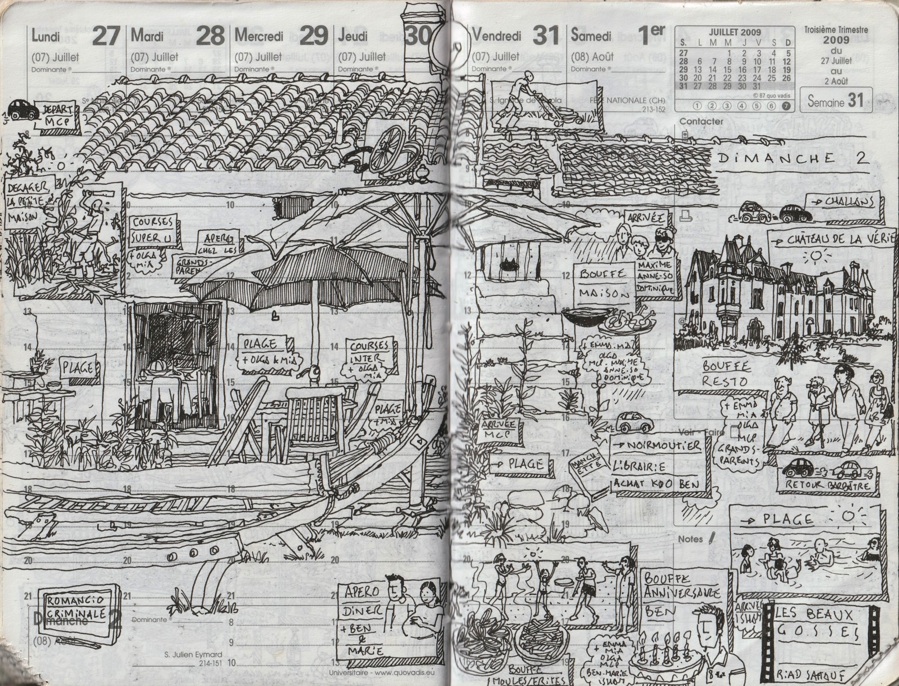 Lundi 27
(07) Juillet
Dominante
Mardi 28
(07) Juillet
Dominante
Mercredi 29
(07) Juillet
Dominante
Jeudi 30
(07) Juillet
Vendredi 31
(07) Juillet
Dominante
Samedi 1er
(08) Août
JUILLET 2009
S. L M M J V S D
27 1 2 3 4 5
28 6 7 8 9 10 11 12
29 13 14 15 16 17 18 19
30 20 21 22 23 24 25 26
31 27 28 29 30 31
© 87 quo vadis
1 2 3 4 5 6 7
Troisième Trimestre
2009
du
27 Juillet
au
2 Août
Semaine 31
NATIONALE (CH)
213-152
Contacter
DIMANCHE 2
DEPART
MCP
DEGAGER
LA PETITE
MAISON
COURSES
SUPER U
+ OLGA
MIA
APERO
CHEZ LES
GRANDS
PAREN
PLAGE
PLAGE
+ OLGA & MIA
COURSES
INTER
+ OLGA
MIA
PLAGE
+ MIA
ARRIVÉE
MAXIME
ANNE-SO
DOMINIQUE
BOUFFE
MAISON
+ EMMA. MIA
OLGA
MCP MAXIME
ANNE-SO
DOMINIQUE
ARRIVÉE
MCP
→ PLAGE
→ NOIRMOUTIER
LIBRAIRIE
ACHAT KDO BEN
→ CHALLANS
→ CHÂTEAU DE LA VÉRIE
BOUFFE
RESTO
+ EMMA
MIA
OLGA
MCP
GRANDS-
PARENTS
Voir - Faire
RETOUR BARBÂTRE
→ PLAGE
Notes
ROMANCIO
CRIMINALE
Dimanche
(08) Août
Dominante
S. Julien Eymard
214-151
APERO
DINER
+ BEN
&
MARIE
Universitaire - www.quovadis.eu
BOUFFE
MOULES/FRITES
BOUFFE
ANNIVERSAIRE
BEN
+ EMMA
MIA
OLGA
MCP
BEN-MARIE
LES BEAUX
GOSSES
RIAD SATTOUF